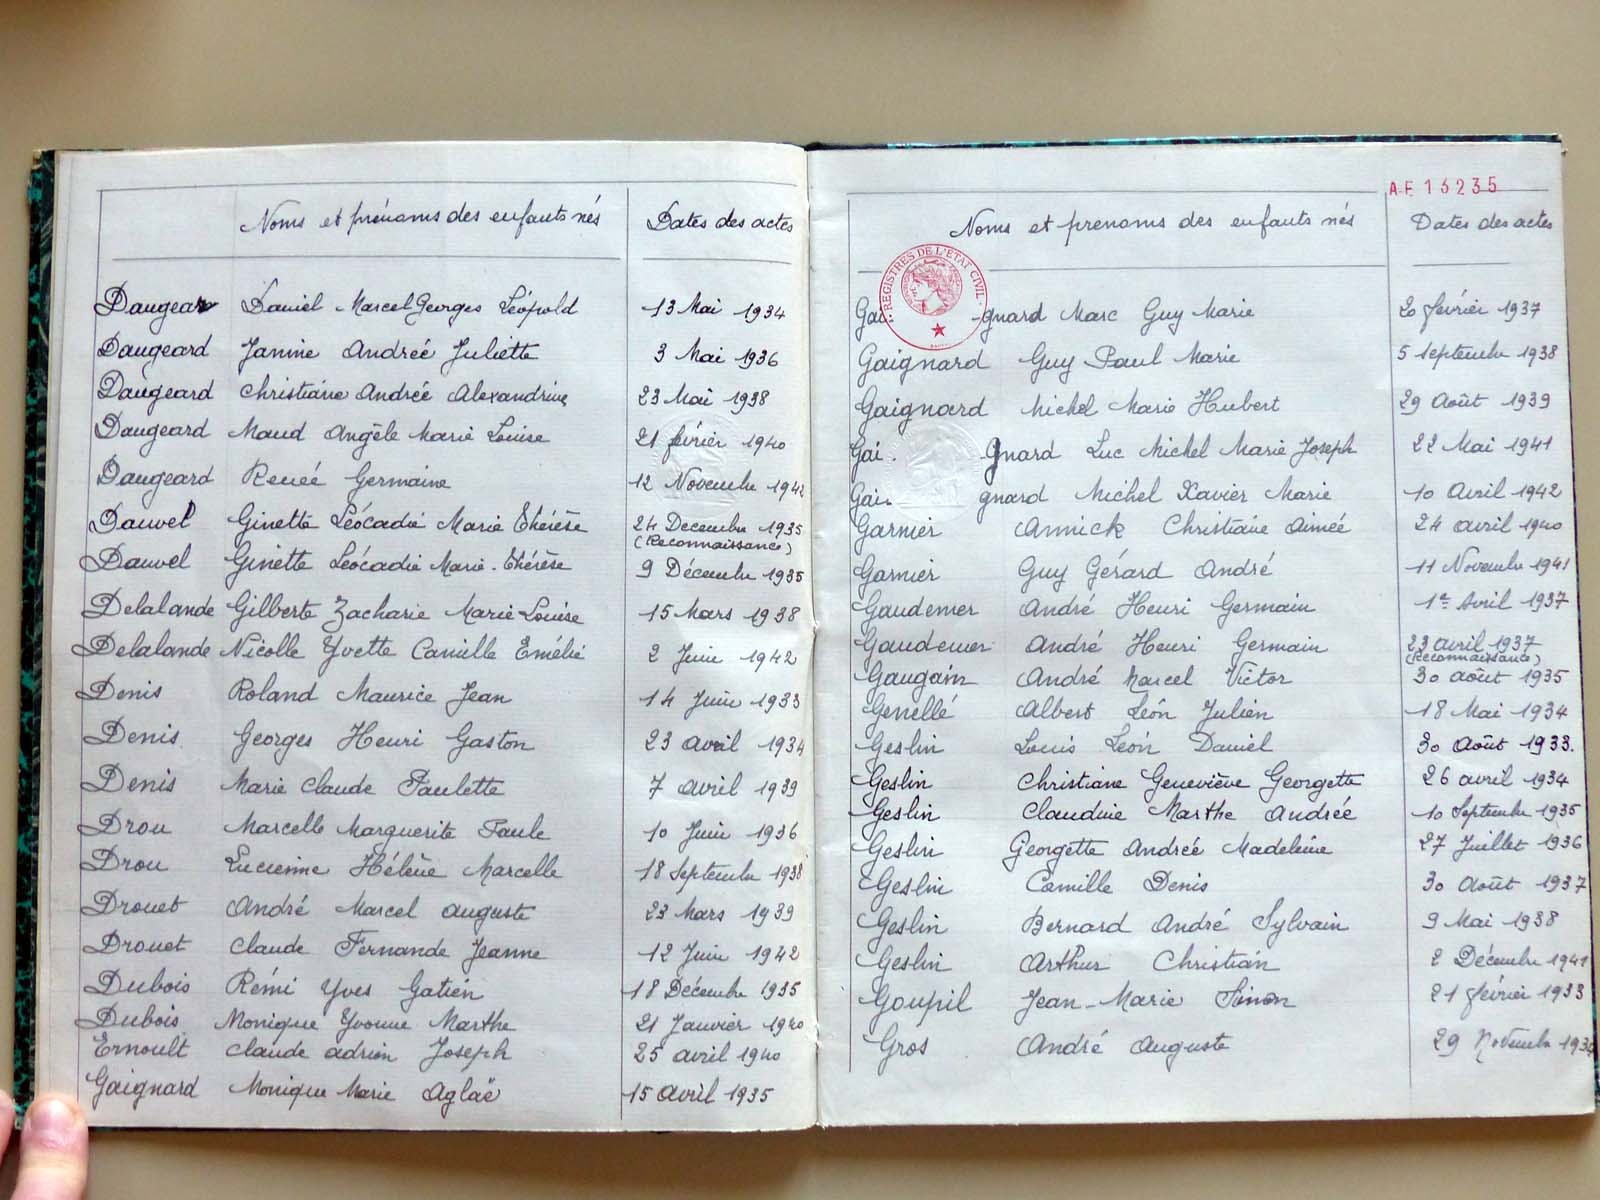 Noms et prénoms des enfants nés Dates des actes
Daugear Daniel Marcel Georges Léopold 13 Mai 1934
Daugeard Janine Andreé Juliette 3 Mai 1936
Daugeard Christiane Andreé Alexandrine 23 Mai 1938
Daugeard Maud Angèle Marie Louise 21 février 1940
Daugeard Renée Germaine 12 Novembre 1942
Dauvel Ginette Léocadie Marie Thérèse 24 Decembre 1935
(Reconnaissance)
Dauvel Ginette Léocadie Marie-Thérèse 9 Décembre 1935
Delalande Gilberte Zacharie Marie-Louise 15 Mars 1938
Delalande Nicolle Yvette Camille Emélie 2 Juin 1942
Denis Roland Maurice Jean 14 Juin 1933
Denis Georges Henri Gaston 23 avril 1934
Denis Marie Claude Paulette 7 avril 1939
Drou Marcelle Marguerite Paule 10 Juin 1936
Drou Lucienne Hélène Marcelle 18 Septembre 1938
Drouet André Marcel Auguste 23 Mars 1939
Drouet Claude Fernande Jeanne 12 Juin 1942
Dubois Rémi Yves Gatien 18 Décembre 1935
Dubois Monique Yvonne Marthe 21 Janvier 1940
Ernoult Claude Adrien Joseph 25 avril 1940
Gaignard Monique Marie Aglaë 15 avril 1935
AE 13235
Noms et prenoms des enfants nés Dates des actes
REGISTRES DE L'ETAT CIVIL
Gai -gnard Marc Guy Marie 20 février 1937
Gaignard Guy Paul Marie 5 septembre 1938
Gaignard Michel Marie Hubert 29 Août 1939
Gai. gnard Luc Michel Marie Joseph 22 Mai 1941
Gai. gnard Michel Xavier Marie 10 Avril 1942
Garnier Annick Christiane Aimée 24 avril 1940
Garnier Guy Gérard André 11 Novembre 1941
Gaudemer André Henri Germain 1er Avril 1937
Gaudemer André Henri Germain 23 avril 1937
(Reconnaissance)
Gaugain André Marcel Victor 30 août 1935
Genellé Albert Léon Julien 18 Mai 1934
Geslin Louis Léon Daniel 30 Août 1933.
Geslin Christiane Geneviève Georgette 26 avril 1934
Geslin Claudine Marthe Andrée 10 Septembre 1935
Geslin Georgette Andreé Madeleine 27 Juillet 1936
Geslin Camille Denis 30 Août 1937
Geslin Bernard André Sylvain 9 Mai 1938
Geslin Arthur Christian 2 Décembre 1941
Goupil Jean-Marie Simon 21 février 1933
Gros André Auguste 29 Novembre